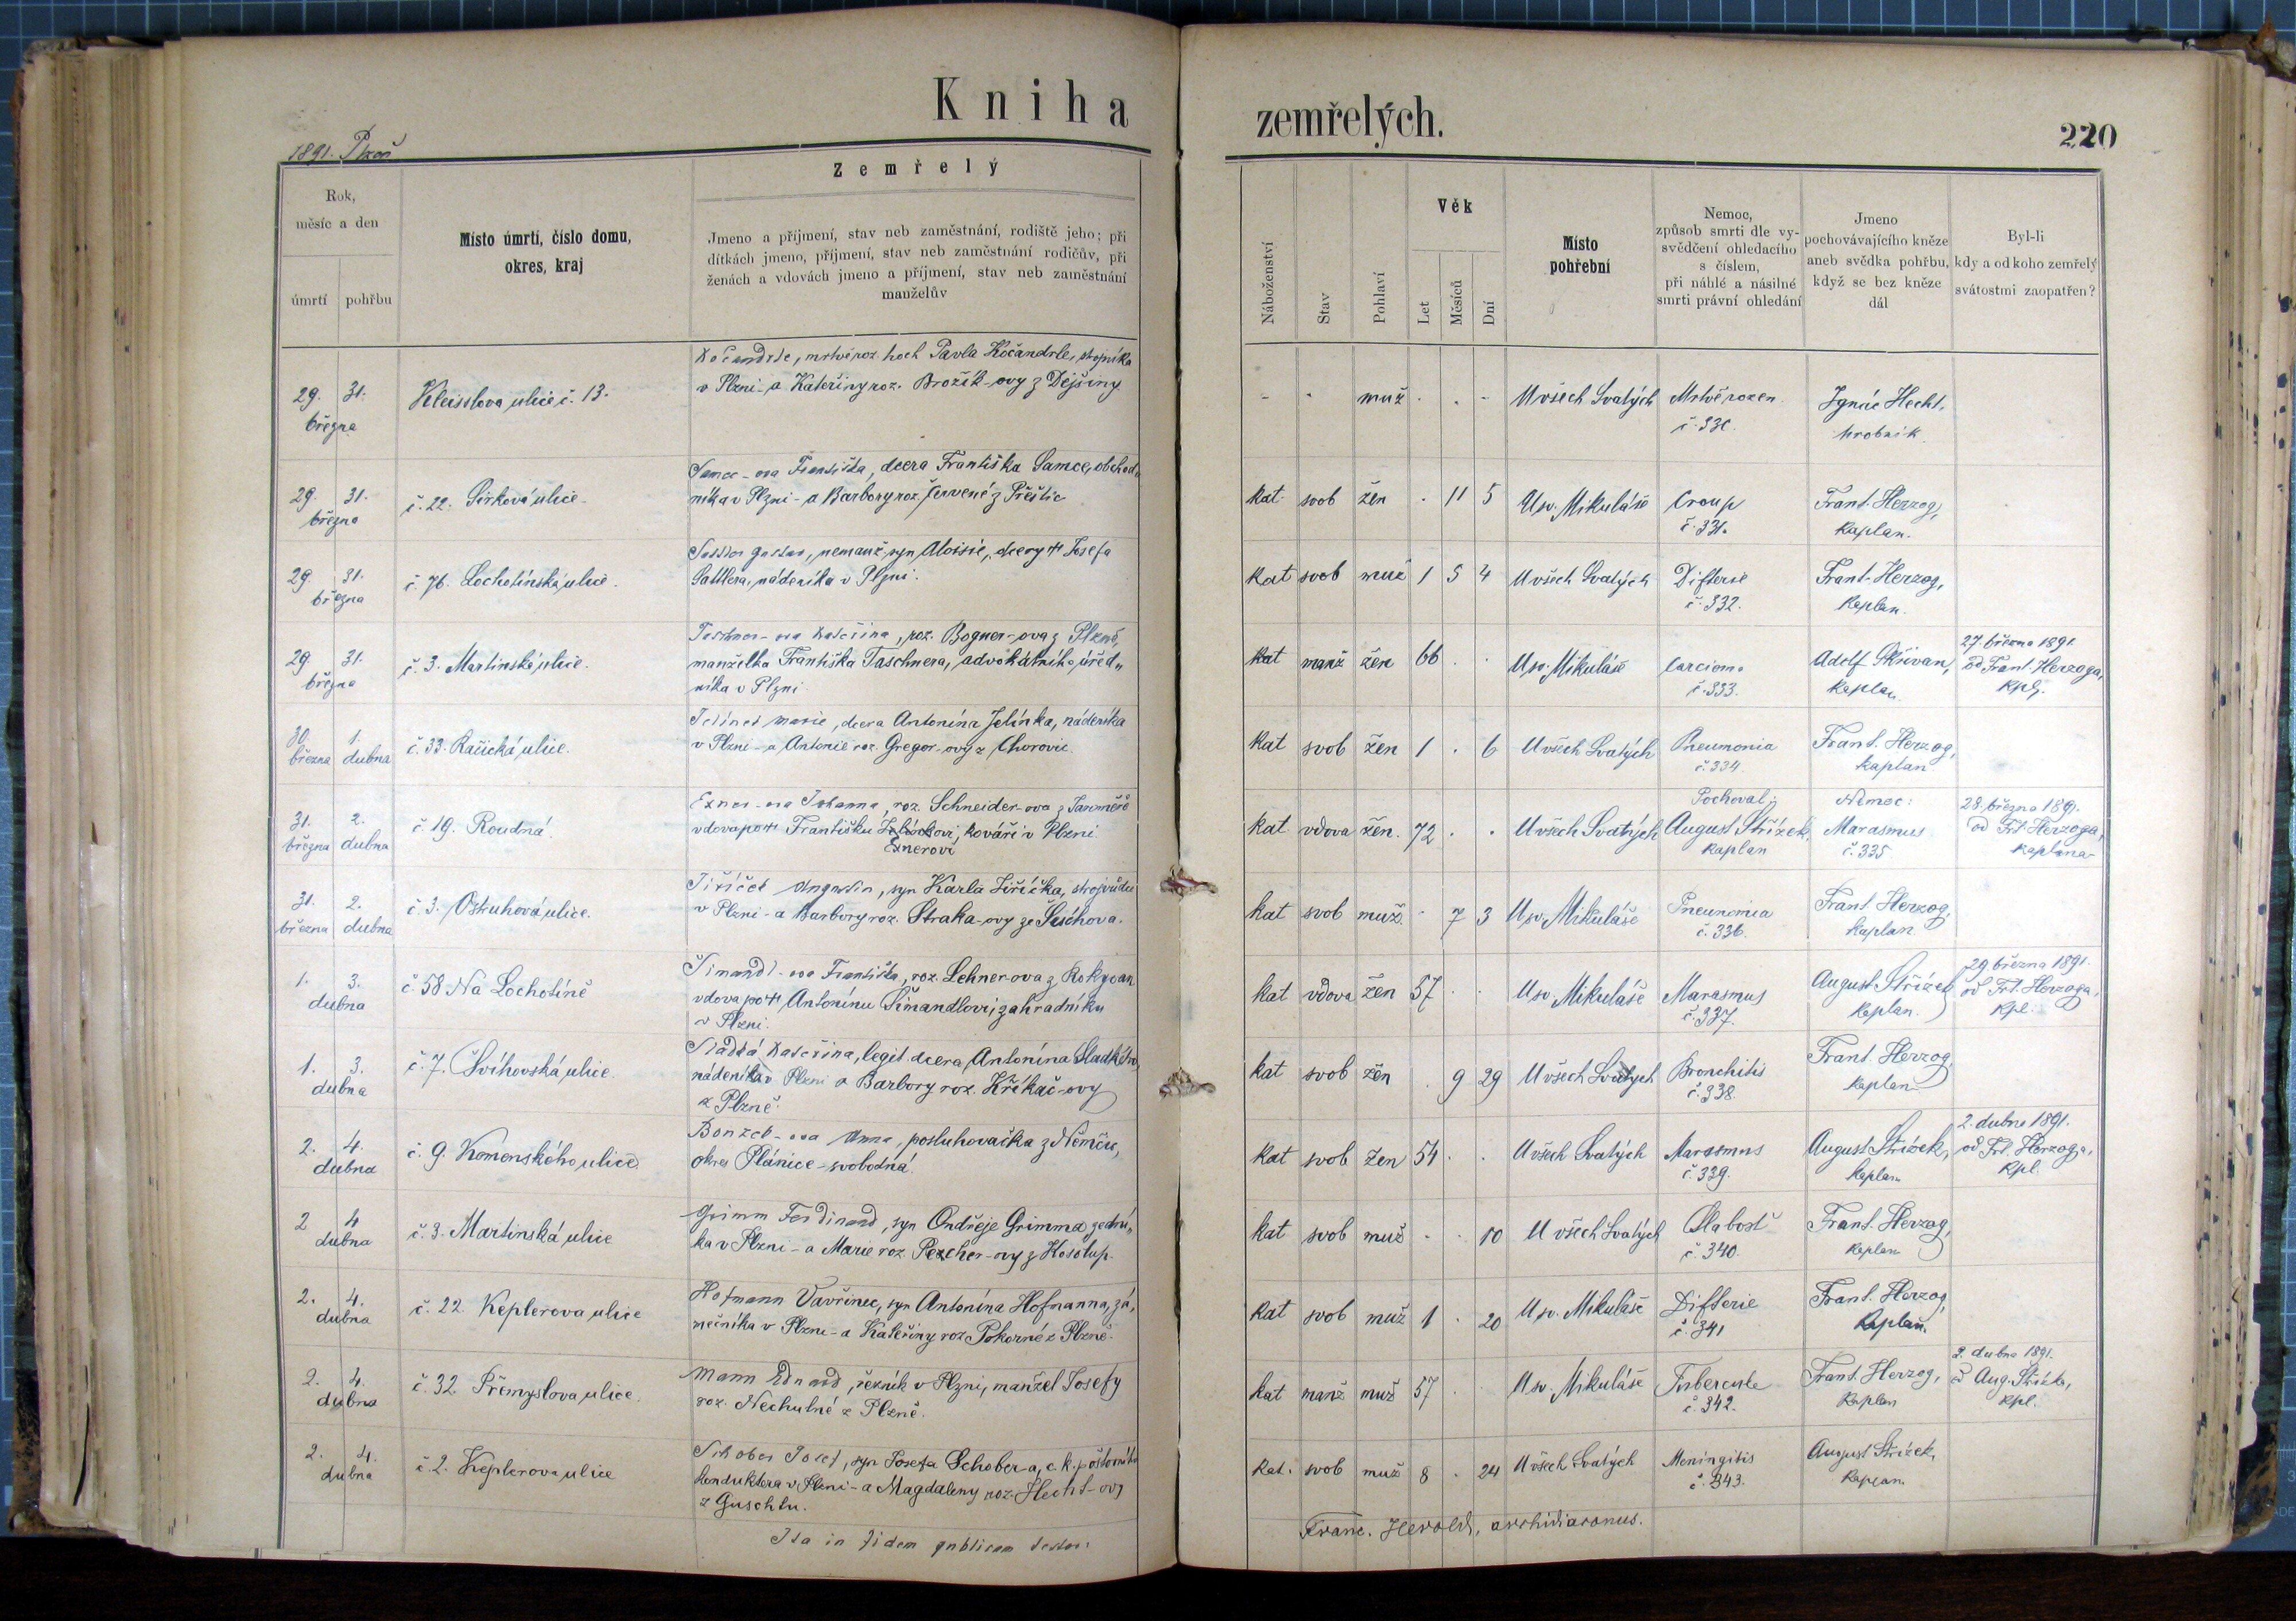 Kniha zemřelých.
220
1891. Plzeň
Zemřelý
Rok,
měsíc a den
úmrtí
pohřbu
Místo úmrtí, číslo domu,
okres, kraj
Jmeno a příjmení, stav neb zaměstnání, rodiště jeho; při
dítkách jmeno, příjmení, stav neb zaměstnání rodičův, při
ženách a vdovách jmeno a příjmení, stav neb zaměstnání
manželův
Náboženství
Stav
Pohlaví
Věk
Let
Měsíců
Dní
Místo
pohřební
Nemoc,
způsob smrti dle vy-
svědčení ohledacího
s číslem,
při náhlé a násilné
smrti právní ohledání
Jmeno
pochovávajícího kněze
aneb svědka pohřbu,
když se bez kněze
dál
Byl-li
kdy a od koho zemřelý
svátostmi zaopatřen?
29. 31.
března
Kleisslova ulice č. 13.
Kočandrle, mrtvěroz. hoch Pavla Kočandrle, strojníka
v Plzni - a Kateřiny roz. Brožík-ovy z Dejšiny
- - muž . . - U všech Svatých Mrtvě rozen. Ignác Hecht,
č. 330. hrobník.
29. 31.
března
č. 22. Sirková ulice.
Samec-ova Františka, dcera Františka Samce, obchod„
níka v Plzni - a Barbory roz. Červené z Přeštic
kat. svob žen . 11 5 U sv. Mikuláše Croup Frant. Herzog,
č. 331. kaplan.
29. 31.
března
č. 76. Lochotínská ulice.
Sattler Gustav, nemanž. syn Aloisie, dcery † Josefa
Sattlera, nádeníka v Plzni.
kat svob muž 1 5 4 U všech Svatých Difterie Frant. Herzog,
č. 332. kaplan.
29. 31.
března
č. 3. Martinská ulice.
Taschner-ova Kateřina, roz. Bogner-ova z Plzně,
manželka Františka Taschnera, advokátního úřed„
níka v Plzni
kat manž žen 66 . . U sv. Mikuláše Carcinoma Adolf Skřivan, 27. března 1891.
č. 333. kaplan od Frant. Herzoga,
kpl.
30. 1.
března dubna
č. 33. Račická ulice.
Jelínek Marie, dcera Antonína Jelínka, nádeníka
v Plzni - a Antonie roz. Gregor-ovy z Chorovic
kat svob žen 1 . 6 U všech Svatých Pneumonia Frant. Herzog,
č. 334. kaplan
31. 2.
března dubna
č. 19. Roudná.
Exner-ova Johanna, roz. Schneider-ova z Jaroměře
vdova po † Františku Jelínkovi, kováři v Plzni.
Exnerovi
kat vdova žen. 72 . . U všech Svatých Pochoval: August Střízek, kaplan
Němoc: Marasmus č. 335
28. března 1891. od Frt. Herzoga, kaplana
31. 2.
března dubna
č. 3. Ostruhová ulice.
Jiříček Augustin, syn Karla Jiříčka, strojvůdce
v Plzni - a Barbory roz. Straka-ovy ze
kat svob muž. - 7 3 U sv. Mikuláše Pneunomia Frant. Herzog,
č. 336. kaplan
1. 3.
dubna
č. 58 Na Lochotíně
Šimandl-ova Františka, roz. Lehner-ova z Rokycan
vdova po † Antonínu Šimandlovi, zahradníku
v Plzni.
kat vdova žen 57 . . U sv. Mikuláše Marasmus August Střízek 29. března 1891.
č. 337. kaplan. od Frt. Herzoga,
kpl.
1. 3.
dubna
č. 7. Švihovská ulice.
Sladká Kateřina, legit. dcera Antonína Sladkého,
nádeníka v Plzni a Barbory roz. Křekač-ovy
z Plzně.
kat svob žen . 9 29 U všech Svatých Bronchitis Frant. Herzog,
č. 338. kaplan
2. 4.
dubna
č. 9. Komenského ulice
Bonzet-ova Anna, posluhovačka z Němčic,
okres Plánice - svobodná.
kat svob žen 54 . . U všech Svatých Marasmus August Střízek, 2. dubna 1891.
č. 339. kaplan od Frt. Herzoga,
kpl.
2 4
dubna
č. 3. Martinská ulice
Grimm Ferdinand, syn Ondřeje Grimma, zední„
ka v Plzni - a Marie roz. Pezcher-ovy z Kosolup.
kat svob muž - . 10 U všech Svatých Slabost Frant. Herzog,
č. 340. kaplan
2. 4.
dubna
č. 22. Keplerova ulice
Hofmann Vavřinec, syn Antonína Hofmanna, zá„
mečníka v Plzni - a Kateřiny roz. Pokorné z Plzně.
kat svob muž 1 . 20 U sv. Mikuláše Difterie Frant. Herzog,
č. 341 kaplan.
2. 4.
dubna
č. 32. Přemyslova ulice.
Mann Eduard, řezník v Plzni, manžel Josefy
roz. Nechutné z Plzně.
kat manž muž 57 . U sv. Mikuláše Tuberculo Frant. Herzog, 2. dubna 1891.
č. 342. kaplan od Aug. Střízka,
kpl.
2. 4.
dubna
č. 2. Keplerova ulice
Schober Josef, syn Josefa Schober-a, c. k. poštovního
konduktera v Plzni - a Magdaleny roz. Hecht-ovy
z Guschtu.
kat. svob muž 8 . 24 U všech Svatých Meningitis August Střízek,
č. 343. kaplan.
Ita in fidem publicam testor:
Franc. Herold, archidiaconus.